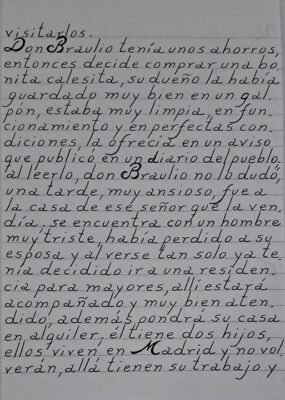 visitarlos.
Don Braulio tenía unos ahorros,
entonces decide comprar una bo
nita calesita, su dueño la había
guardado muy bien en un gal
pón, estaba muy limpia, en fun
cionamiento y en perfectas con
diciones, la ofrecía en un aviso
que publicó en un diario del pueblo,
al leerlo, don Braulio no lo dudó,
una tarde, muy ansioso, fue a
la casa de ese señor que la ven
día, se encuentra con un hombre
muy triste, había perdido a su
esposa y al verse tan solo ya te
nía decidido ir a una residen
cia para mayores, allí estará
acompañado y muy bien aten
dido, además pondrá su casa
en alquiler, él tiene dos hijos,
ellos viven en Madrid y no vol
verán, allá tienen su trabajo y